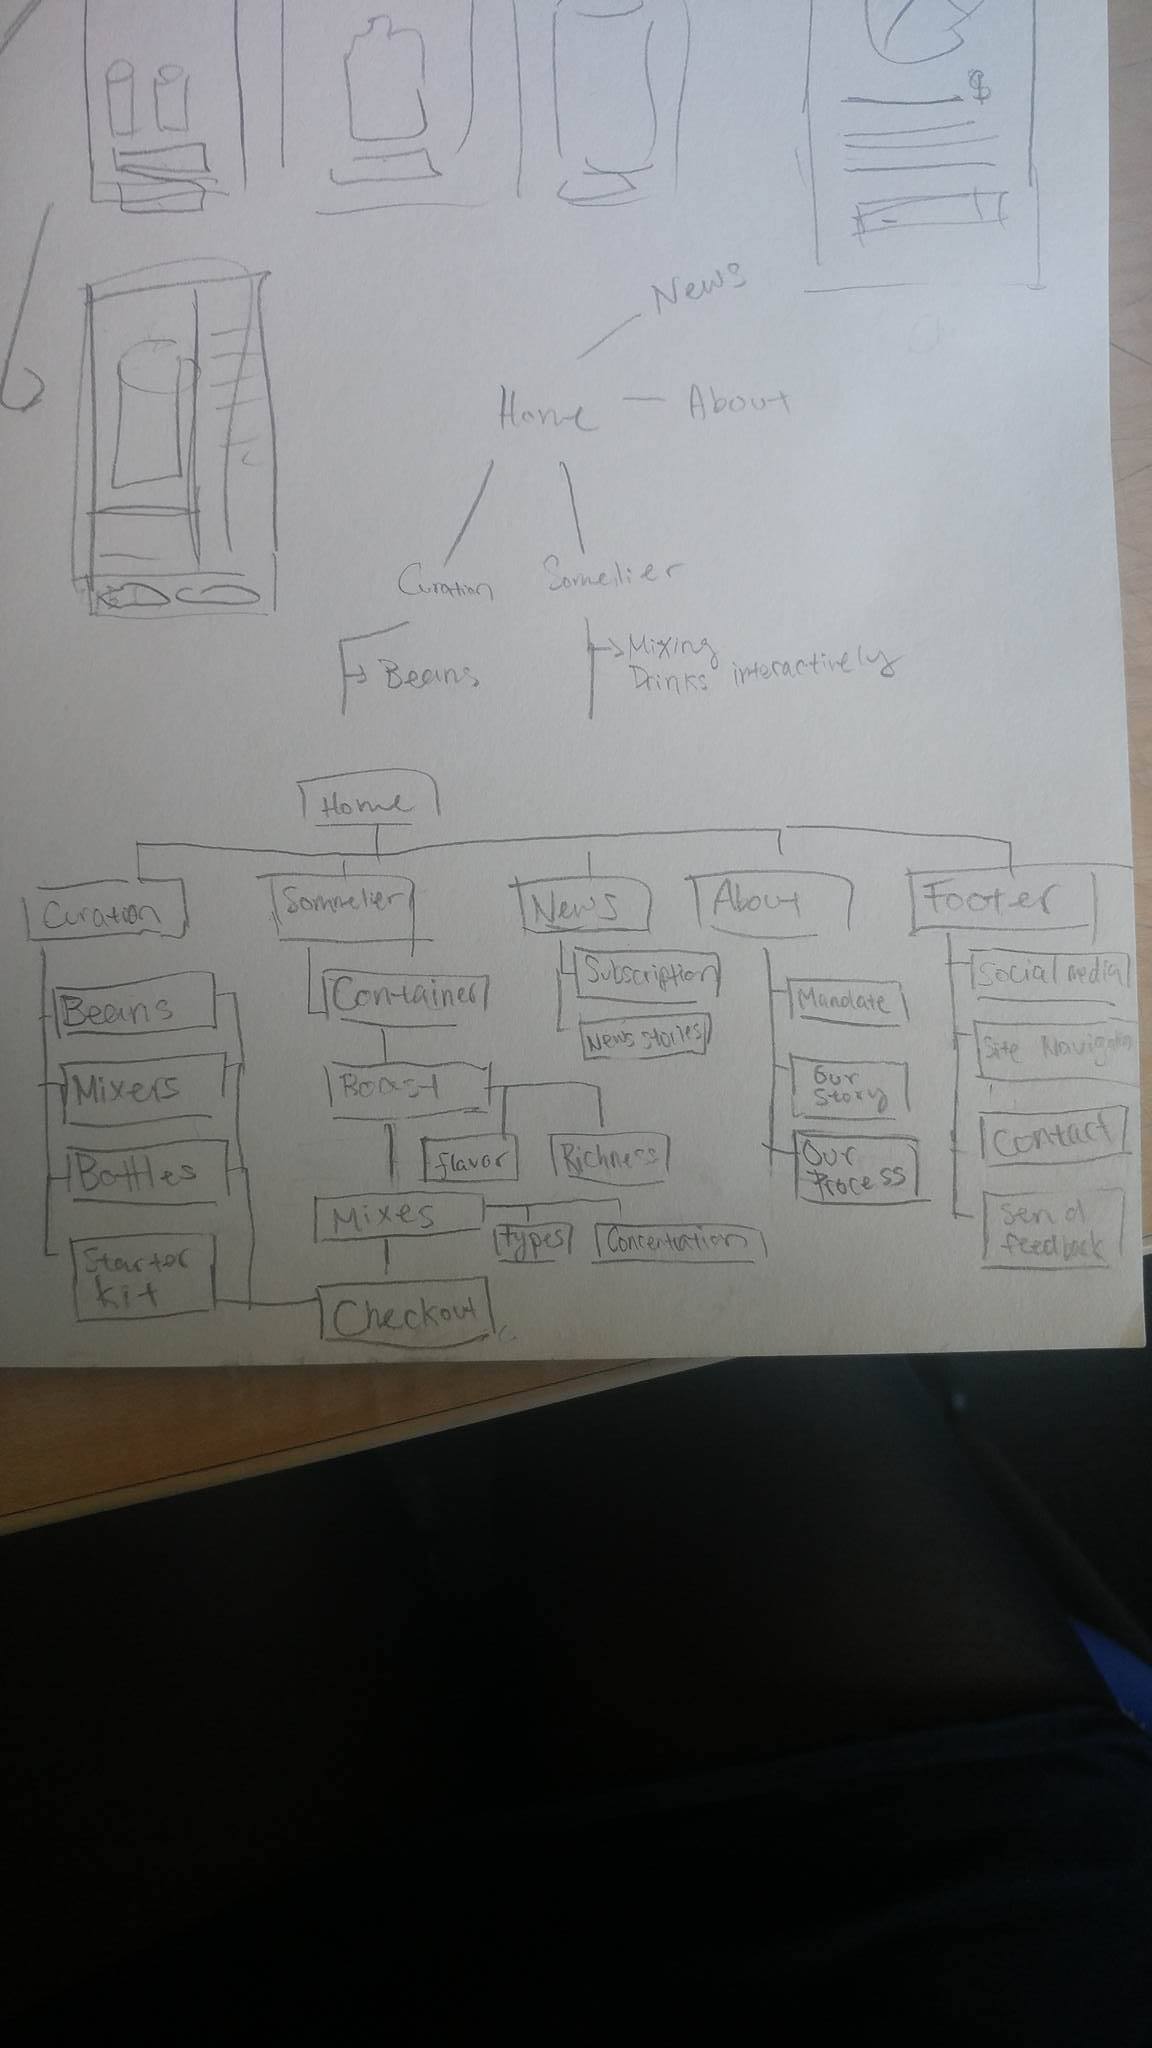 $
News
Home
About
Curation
Sommelier
Beans
Mixing
Drinks interactively
Home
Curation
Sommelier
News
About
Footer
Beans
Mixers
Bottles
Starter
kit
Container
Roast
flavor
Richness
Mixes
types
Concentration
Checkout
Subscription
News stories
Mandate
Our
Story
Our
Process
Social media
Site Navigation
Contact
Send
feedback